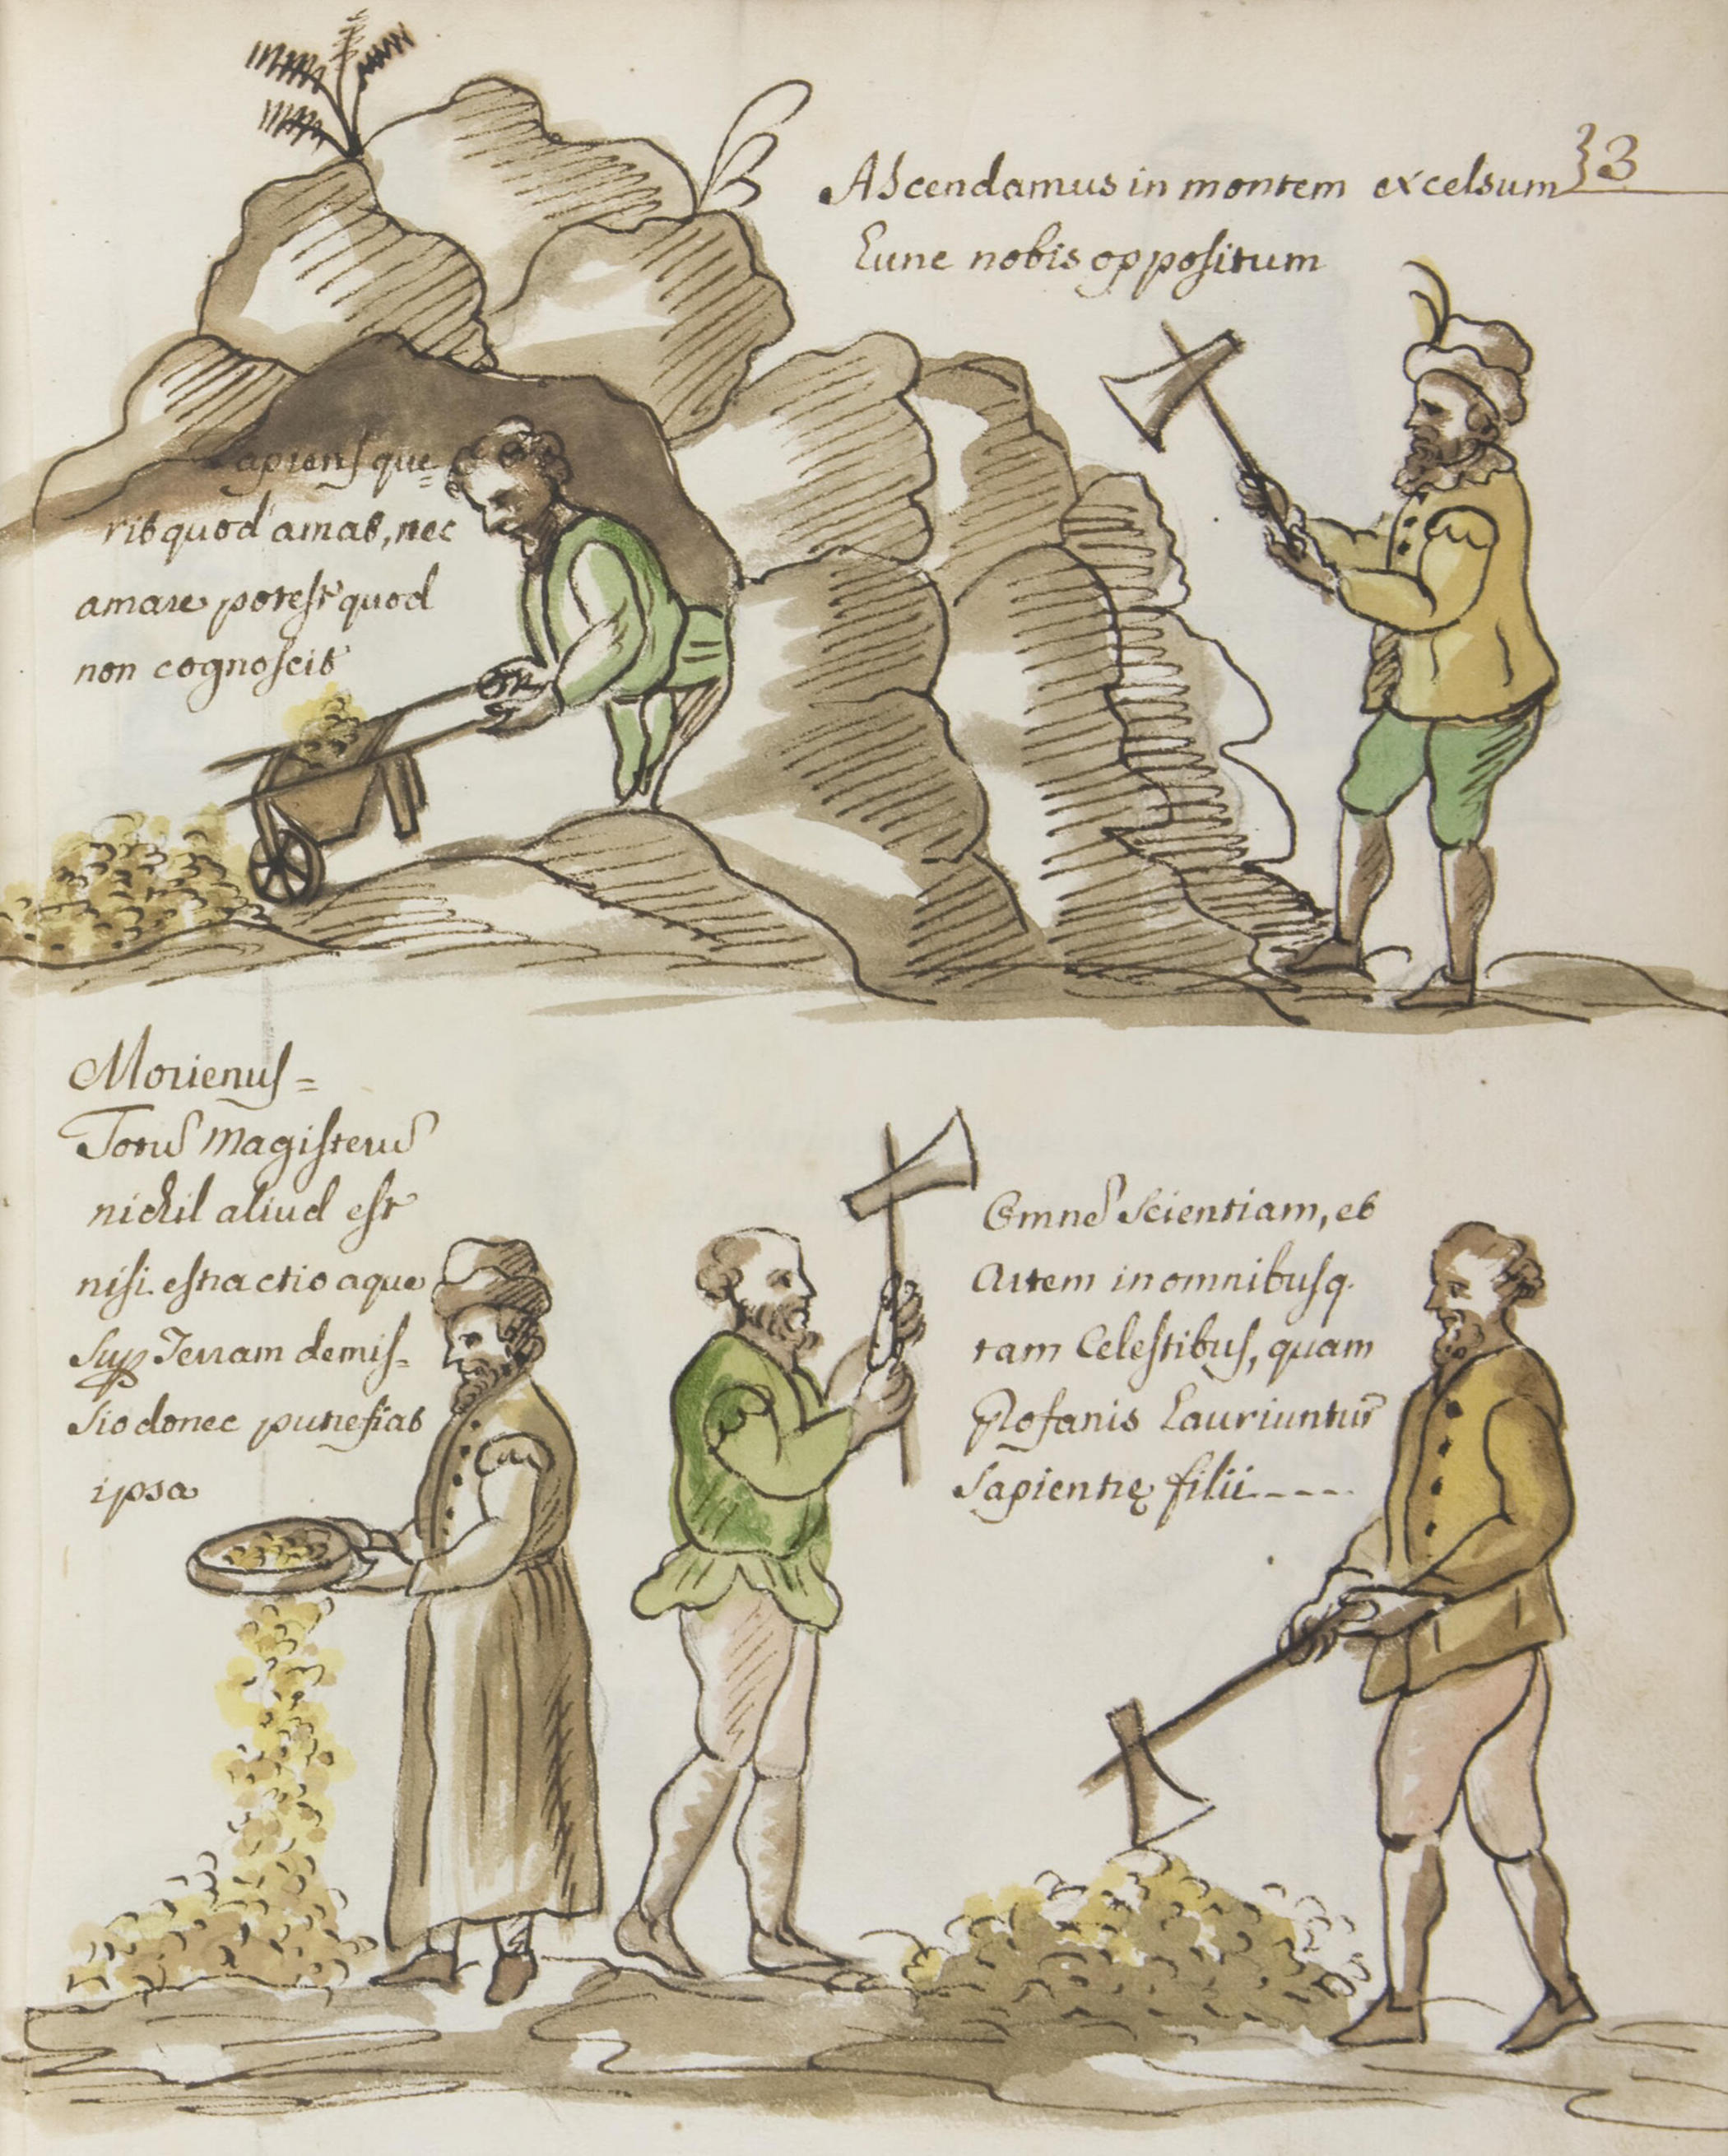 Ascendamus in montem excelsum 3
Eune nobis oppositum
apiens que=
ris quod amas, nec
amare potest quod
non cognoscis
Morienus=
Totu Magisteru
nichil aliud est
nisi estractio aque
Sup Terram demis-
sio donec putrefiat
ipsa
Omne Scientiam, et
Artem in omnibusq.
tam Celestibus, quam
Profanis Lauriuntur
Sapientię filii----